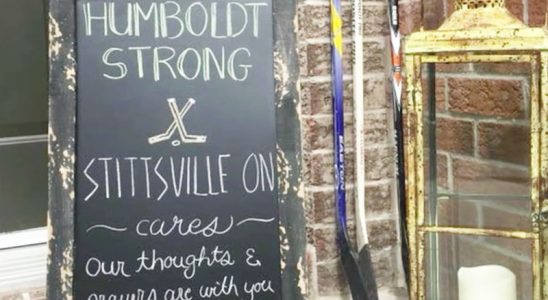 HUMBOLDT
STRONG
STITTSVILLE ON
~ cares ~
our thoughts &
prayers are with you
EASTON